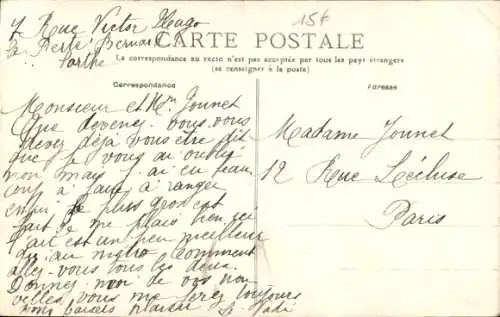 7 Rue Victor Hugo
La Ferté Bernard
Sarthe
15f
CARTE POSTALE
La correspondance au recto n'est pas acceptée par tous les pays étrangers
(se renseigner à la poste)
Correspondance
Adresse
Monsieur et Mme Jonnet
Que devenez-vous. vous
devez déjà vous être dit
que je vous ai oublié
non mais j'ai eu beaucoup
à faire à ranger
enfin le plus gros est
fait je me plais bien ici
l'air est un peu meilleur
du'au métro comment
allez-vous tous les deux.
Donnez-moi de vos nou
velles vous me ferez toujours
plaisir
Madame Jonnet
12 Rue Lécluse
Paris